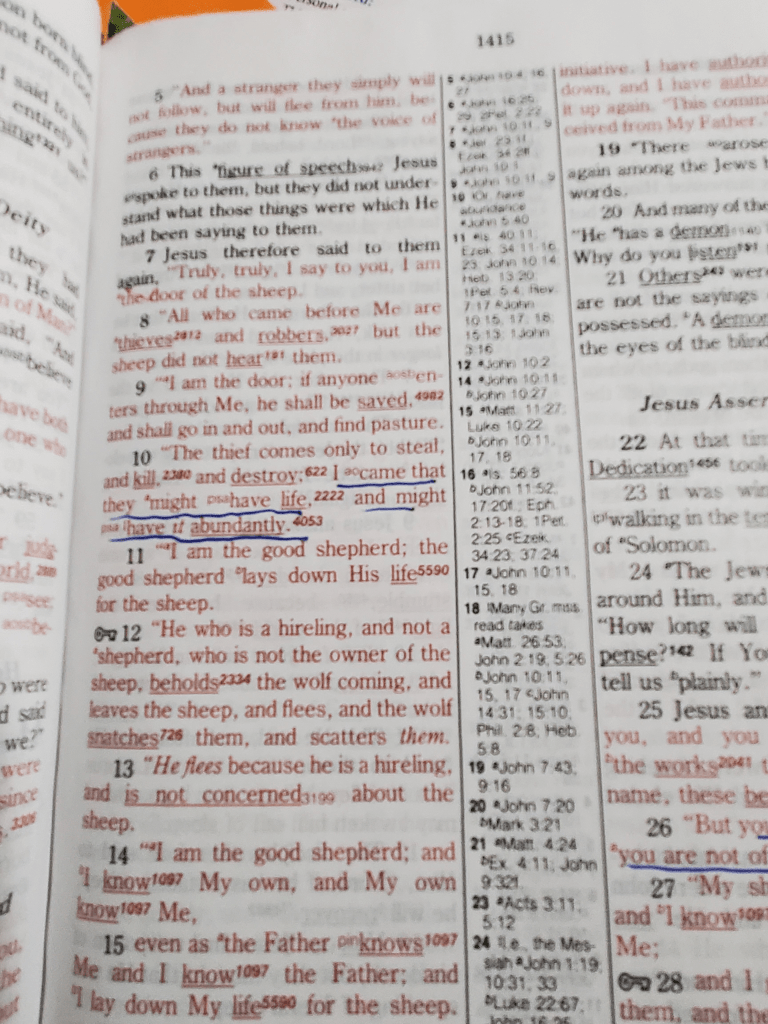 1415
5 "And a stranger they simply will
not follow, but will flee from him, be-
cause they do not know ᵃthe voice of
strangers."
6 This ᵃfigure of speech³⁹⁴² Jesus
spoke to them, but they did not under-
stand what those things were which He
had been saying to them.
7 Jesus therefore said to them
again, "Truly, truly, I say to you, I am
ᵃthe door of the sheep.
8 "All who came before Me are
ᵃthieves²⁸¹² and robbers,³⁰²⁷ but the
sheep did not hear¹⁹¹ them.
9 "ᵃI am the door; if anyone ᵃᵒˢᵇen-
ters through Me, he shall be saved,⁴⁹⁸²
and shall go in and out, and find pasture.
10 "The thief comes only to steal,
and kill,²³⁸⁰ and destroy;⁶²² I ᵃᵒcame that
they ᵃmight ᵖˢᵃhave life,²²²² and might
ᵖˢᵃ ˡhave it abundantly.⁴⁰⁵³
11 "ᵃI am the good shepherd; the
good shepherd ᵇlays down His life⁵⁵⁹⁰
for the sheep.
12 "He who is a hireling, and not a
ᵃshepherd, who is not the owner of the
sheep, beholds²³³⁴ the wolf coming, and
leaves the sheep, and flees, and the wolf
snatches⁷²⁶ them, and scatters them.
13 "He flees because he is a hireling,
and is not concerned₃₁₉₉ about the
sheep.
14 "ᵃI am the good shepherd; and
ᵇI know¹⁰⁹⁷ My own, and My own
know¹⁰⁹⁷ Me,
15 even as ᵃthe Father ᵖⁱⁿknows¹⁰⁹⁷
Me and I know¹⁰⁹⁷ the Father; and
ᵇI lay down My life⁵⁵⁹⁰ for the sheep.
5 ᵃJohn 10:4, 16,
27
6 ᵃJohn 16:25,
29; 2Pet. 2:22
7 ᵃJohn 10:1f., 9
8 ᵃJer. 23:1f.;
Ezek. 34:2ff.;
John 10:1
9 ᵃJohn 10:1f., 9
10 ˡOr, have
abundance
ᵃJohn 5:40
11 ᵃIs. 40:11;
Ezek. 34:11-16,
23; John 10:14;
Heb. 13:20;
1Pet. 5:4; Rev.
7:17 ᵇJohn
10:15, 17, 18;
15:13; 1John
3:16
12 ᵃJohn 10:2
14 ᵃJohn 10:11
ᵇJohn 10:27
15 ᵃMatt. 11:27;
Luke 10:22
ᵇJohn 10:11,
17, 18
16 ᵃIs. 56:8
ᵇJohn 11:52;
17:20f.; Eph.
2:13-18; 1Pet.
2:25 ᶜEzek.
34:23; 37:24
17 ᵃJohn 10:11,
15, 18
18 ˡMany Gr. mss.
read takes
ᵃMatt. 26:53;
John 2:19; 5:26
ᵇJohn 10:11,
15, 17 ᶜJohn
14:31; 15:10;
Phil. 2:8; Heb.
5:8
19 ᵃJohn 7:43;
9:16
20 ᵃJohn 7:20
ᵇMark 3:21
21 ᵃMatt. 4:24
ᵇEx. 4:11; John
9:32f.
23 ᵃActs 3:11;
5:12
24 ˡI.e., the Mes-
siah ᵃJohn 1:19;
10:31, 33
ᵇLuke 22:67;
John 16:25
initiative. I have authori
down, and I have autho
it up again. ᶜThis comma
ceived from My Father."
19 ᵃThere arose
again among the Jews b
words.
20 And many of the
"He ᵃhas a demon¹¹⁴⁰
Why do you listen¹⁹¹
21 Others²⁴³ were
are not the sayings
possessed. ᵇA demon
the eyes of the blind
Jesus Asser
22 At that tim
Dedication¹⁴⁵⁶ took
23 it was win
walking in the tem
of ᵃSolomon.
24 ᵃThe Jews
around Him, and
"How long will
pense?¹⁴² If You
tell us ᵇplainly."
25 Jesus an
you, and you
ᵇthe works²⁰⁴¹ t
name, these be
26 "But you
ᵃyou are not of
27 "My sh
and ᵇI know¹⁰⁹⁷
Me;
28 and I g
them, and the